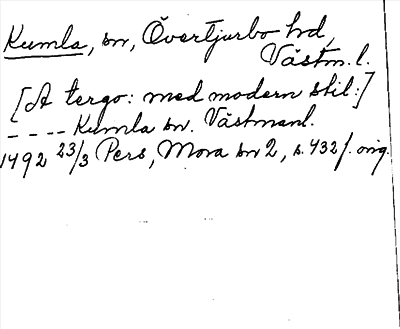 Kumla, sn, Övertjurbo hd,
Västm. l.
[A tergo: med modern stil:]
---- Kumla sn. Västmanl.
1492 23/3 Pers, Mora sn 2, s. 432 f. orig.